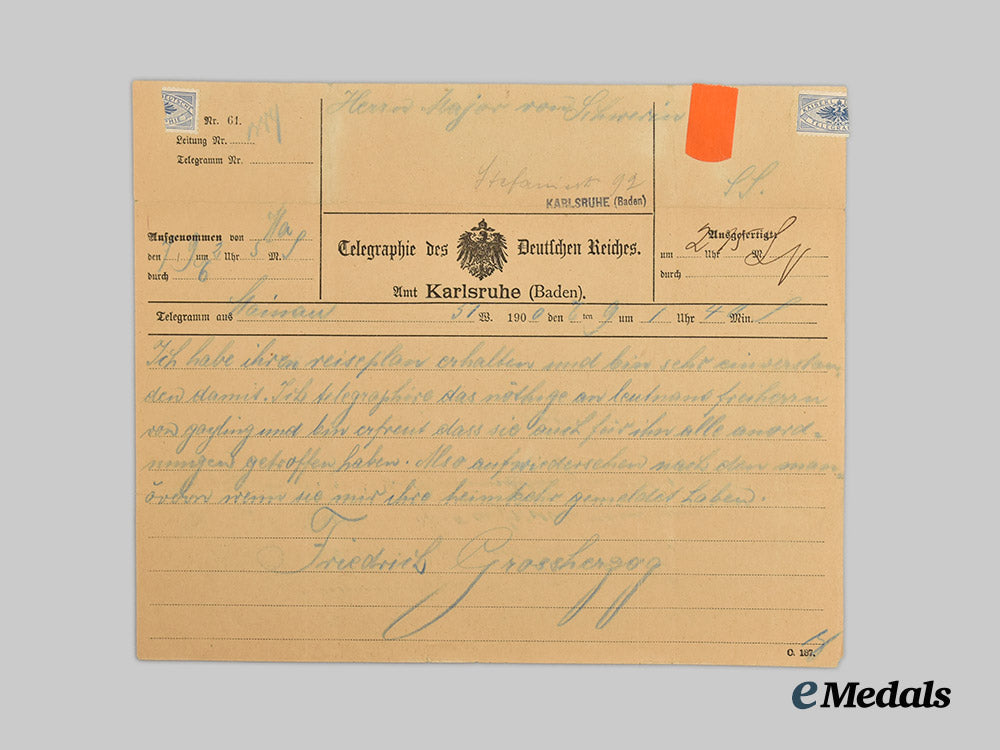 Nr. 61.
Leitung Nr.
Telegramm Nr.
Herrn Major von Schwerin
Stefanienstr 92
KARLSRUHE (Baden)
SS.
Aufgenommen von Ma
den 7/9 um 3 Uhr 5 M.
durch
Telegraphie des Deutschen Reiches.
Amt Karlsruhe (Baden).
Ausgefertigt
um 2 Uhr M.
durch
Telegramm aus Mainau 51 W. 1900 den ten 9 um 1 Uhr Min.
Ich habe ihren reiseplan erhalten und bin sehr einverstan-
den damit. Ich telegraphire das nöthige an leutnant freiherrn
von gayling und bin erfreut dass sie auch für ihn alle anord-
nungen getroffen haben. Also aufwiedersehen nach den man-
övern wenn sie mir ihre heimkehr gemeldet haben.
Friedrich Grossherzog
C. 187.
eMedals